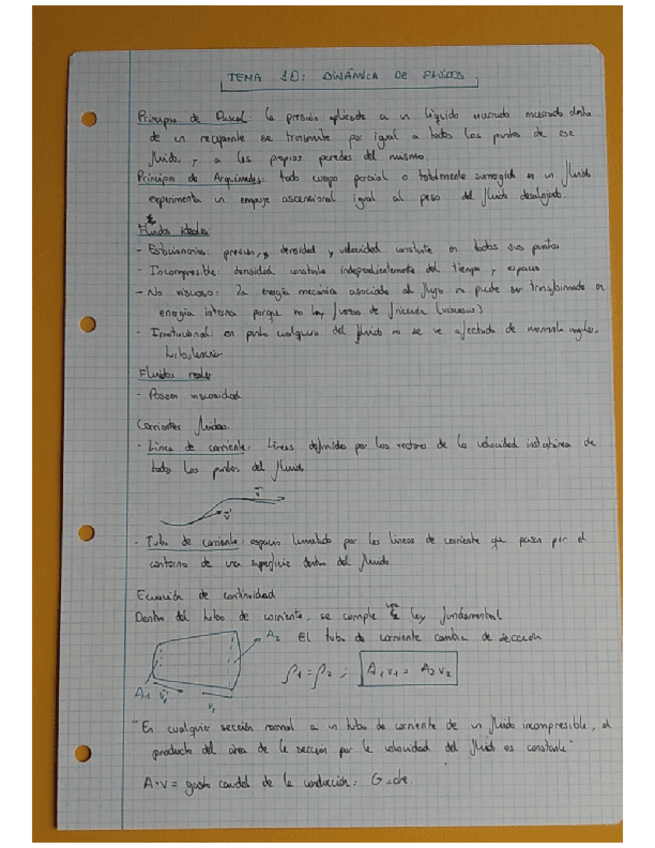 TEMA 10: DINÁMICA DE FLUIDOS
Principio de Pascal: la presión aplicada a un líquido encerrado dentro
de un recipiente se transmite por igual a todos los puntos de ese
fluido, y a las propias paredes del mismo.
Principio de Arquímedes: todo cuerpo parcial o totalmente sumergido en un fluido
experimenta un empuje ascensional igual al peso del fluido desalojado.
Fluidos ideales
- Estacionarios: presión, densidad y velocidad constante en todos sus puntos
- Incompresible: densidad constante independientemente del tiempo y espacio
- No viscoso: La energía mecánica asociada al flujo no puede ser transformada en
energía interna porque no hay fuerzas de fricción (viscosas)
- Irrotacional: en punto cualquiera del fluido no se ve afectado de momento angular.
turbulencia
Fluidos reales
- Poseen viscosidad
Corrientes fluidas.
· Línea de corriente: Líneas definidas por los vectores de la velocidad instantánea de
todos los puntos del fluido
v v
- Tubo de corriente: espacio limitado por las líneas de corriente que pasan por el
contorno de una superficie dentro del fluido.
Ecuación de continuidad
Dentro del tubo de corriente, se cumple una ley fundamental
A₂ El tubo de corriente cambia de sección
ρ₁ = ρ₂ ; A₁v₁ = A₂v₂
A₁ v₁ v₂
"En cualquier sección normal a un tubo de corriente de un fluido incompresible, el
producto del área de la sección por la velocidad del fluido es constante"
A·v = gasto caudal de la conducción: G = cte.